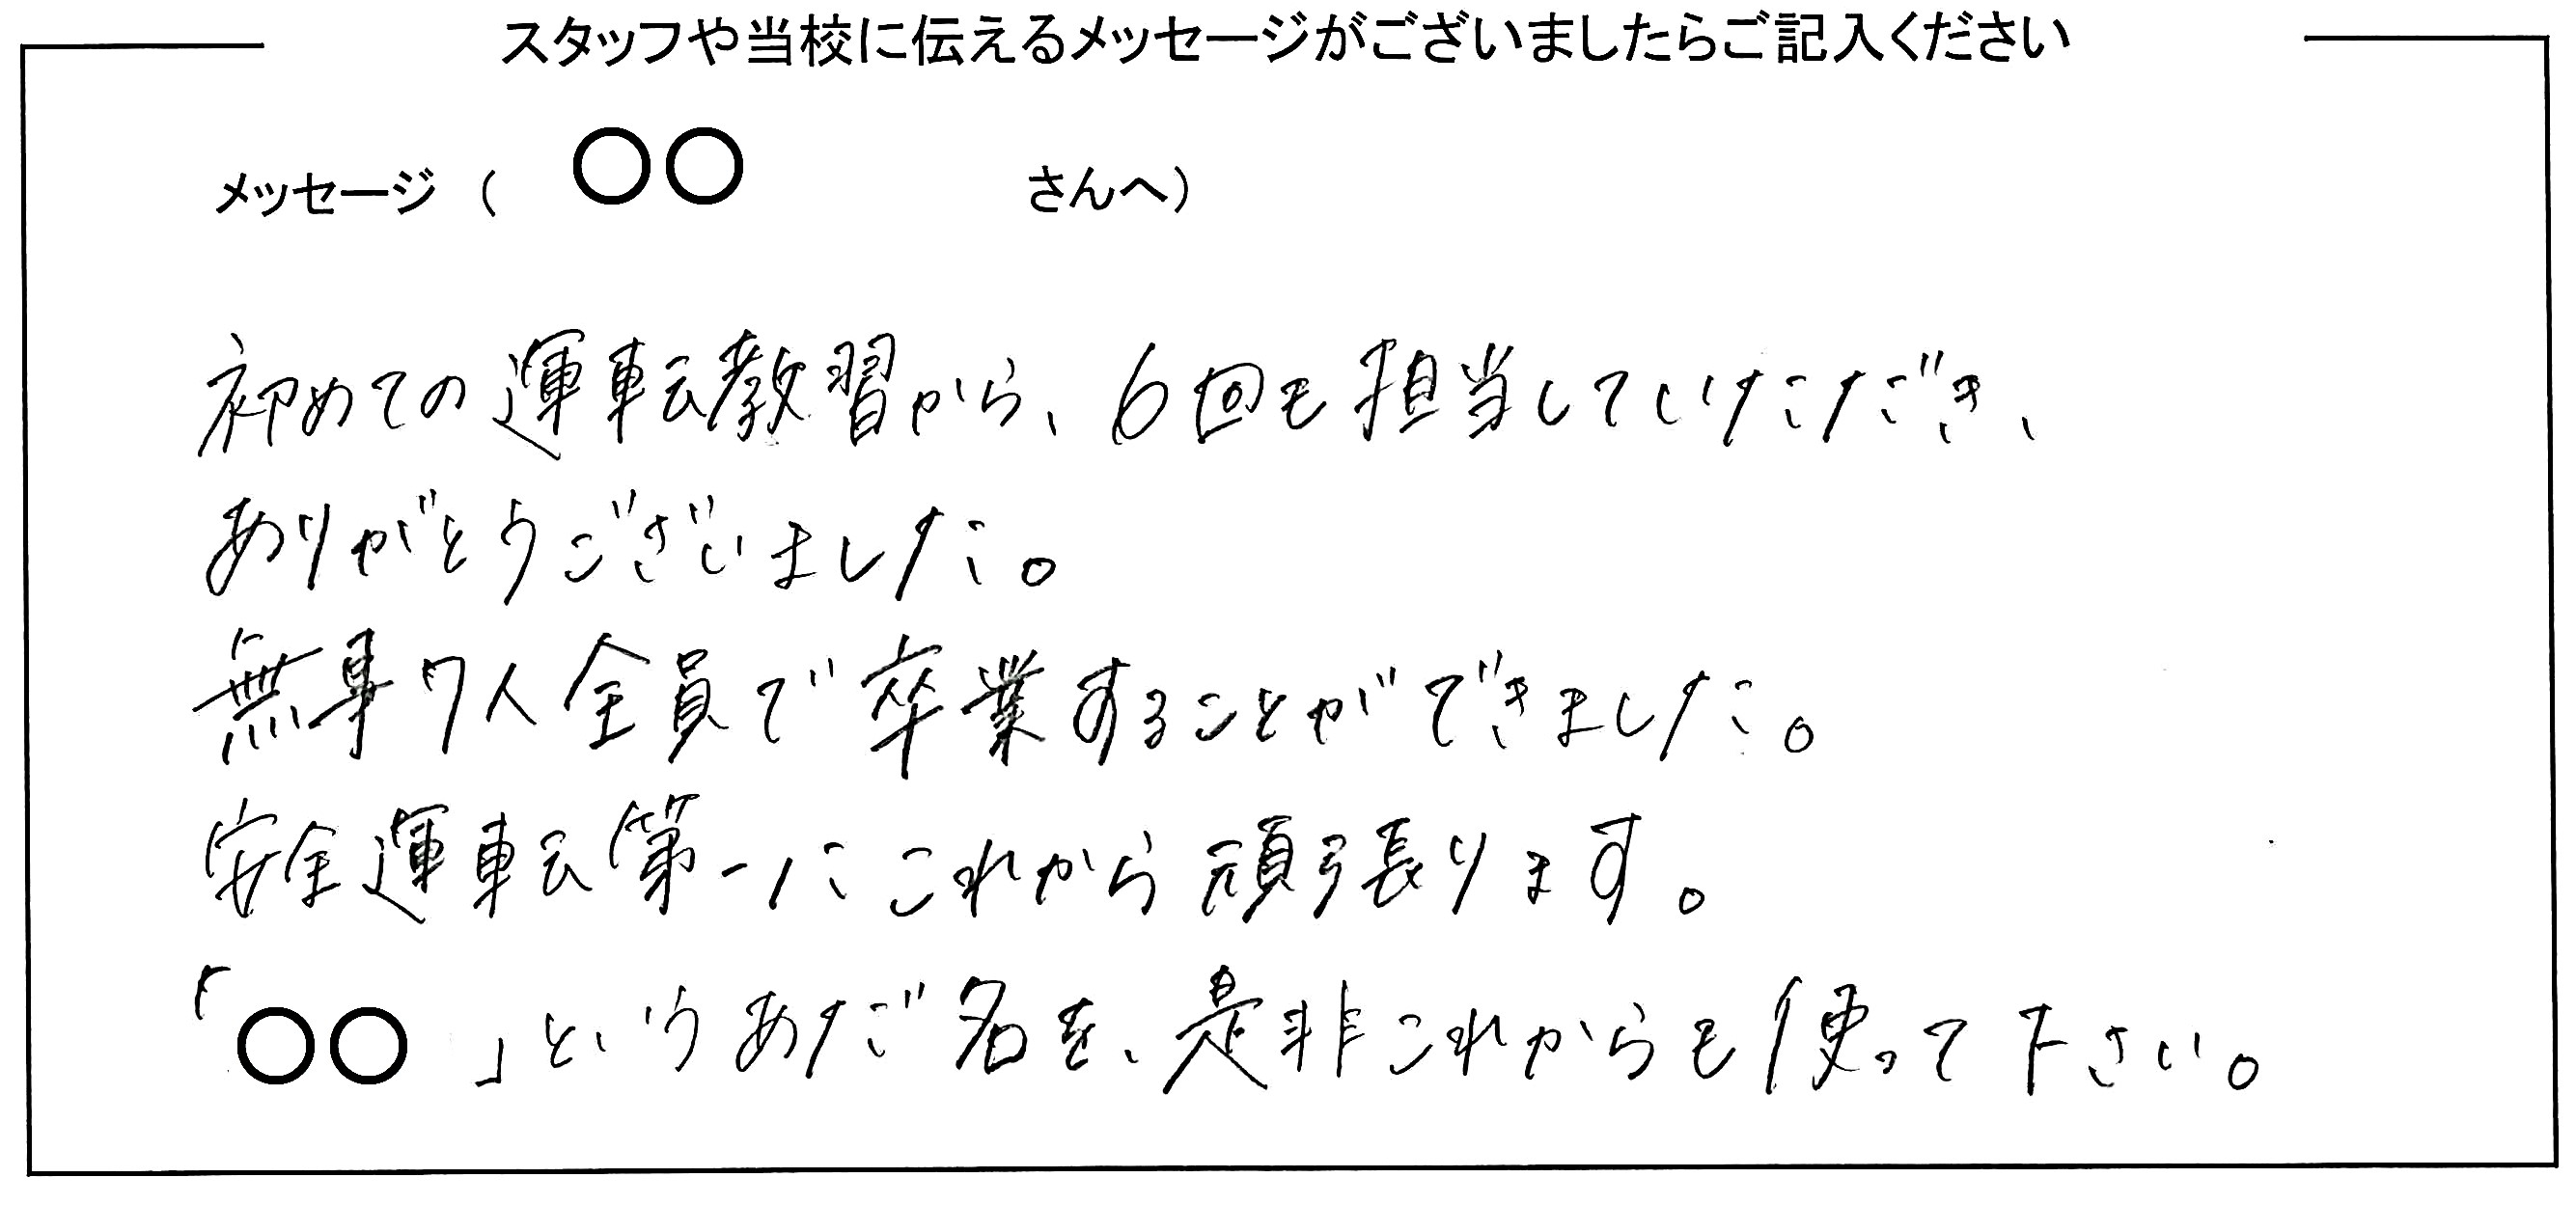 スタッフや当校に伝えるメッセージがございましたらご記入ください
メッセージ（ 〇〇 さんへ）
初めての運転教習から、6回も担当していただき、
ありがとうございました。
無事7人全員で卒業することができました。
安全運転第一にこれから頑張ります。
「〇〇」というあだ名を、是非これからも使って下さい。